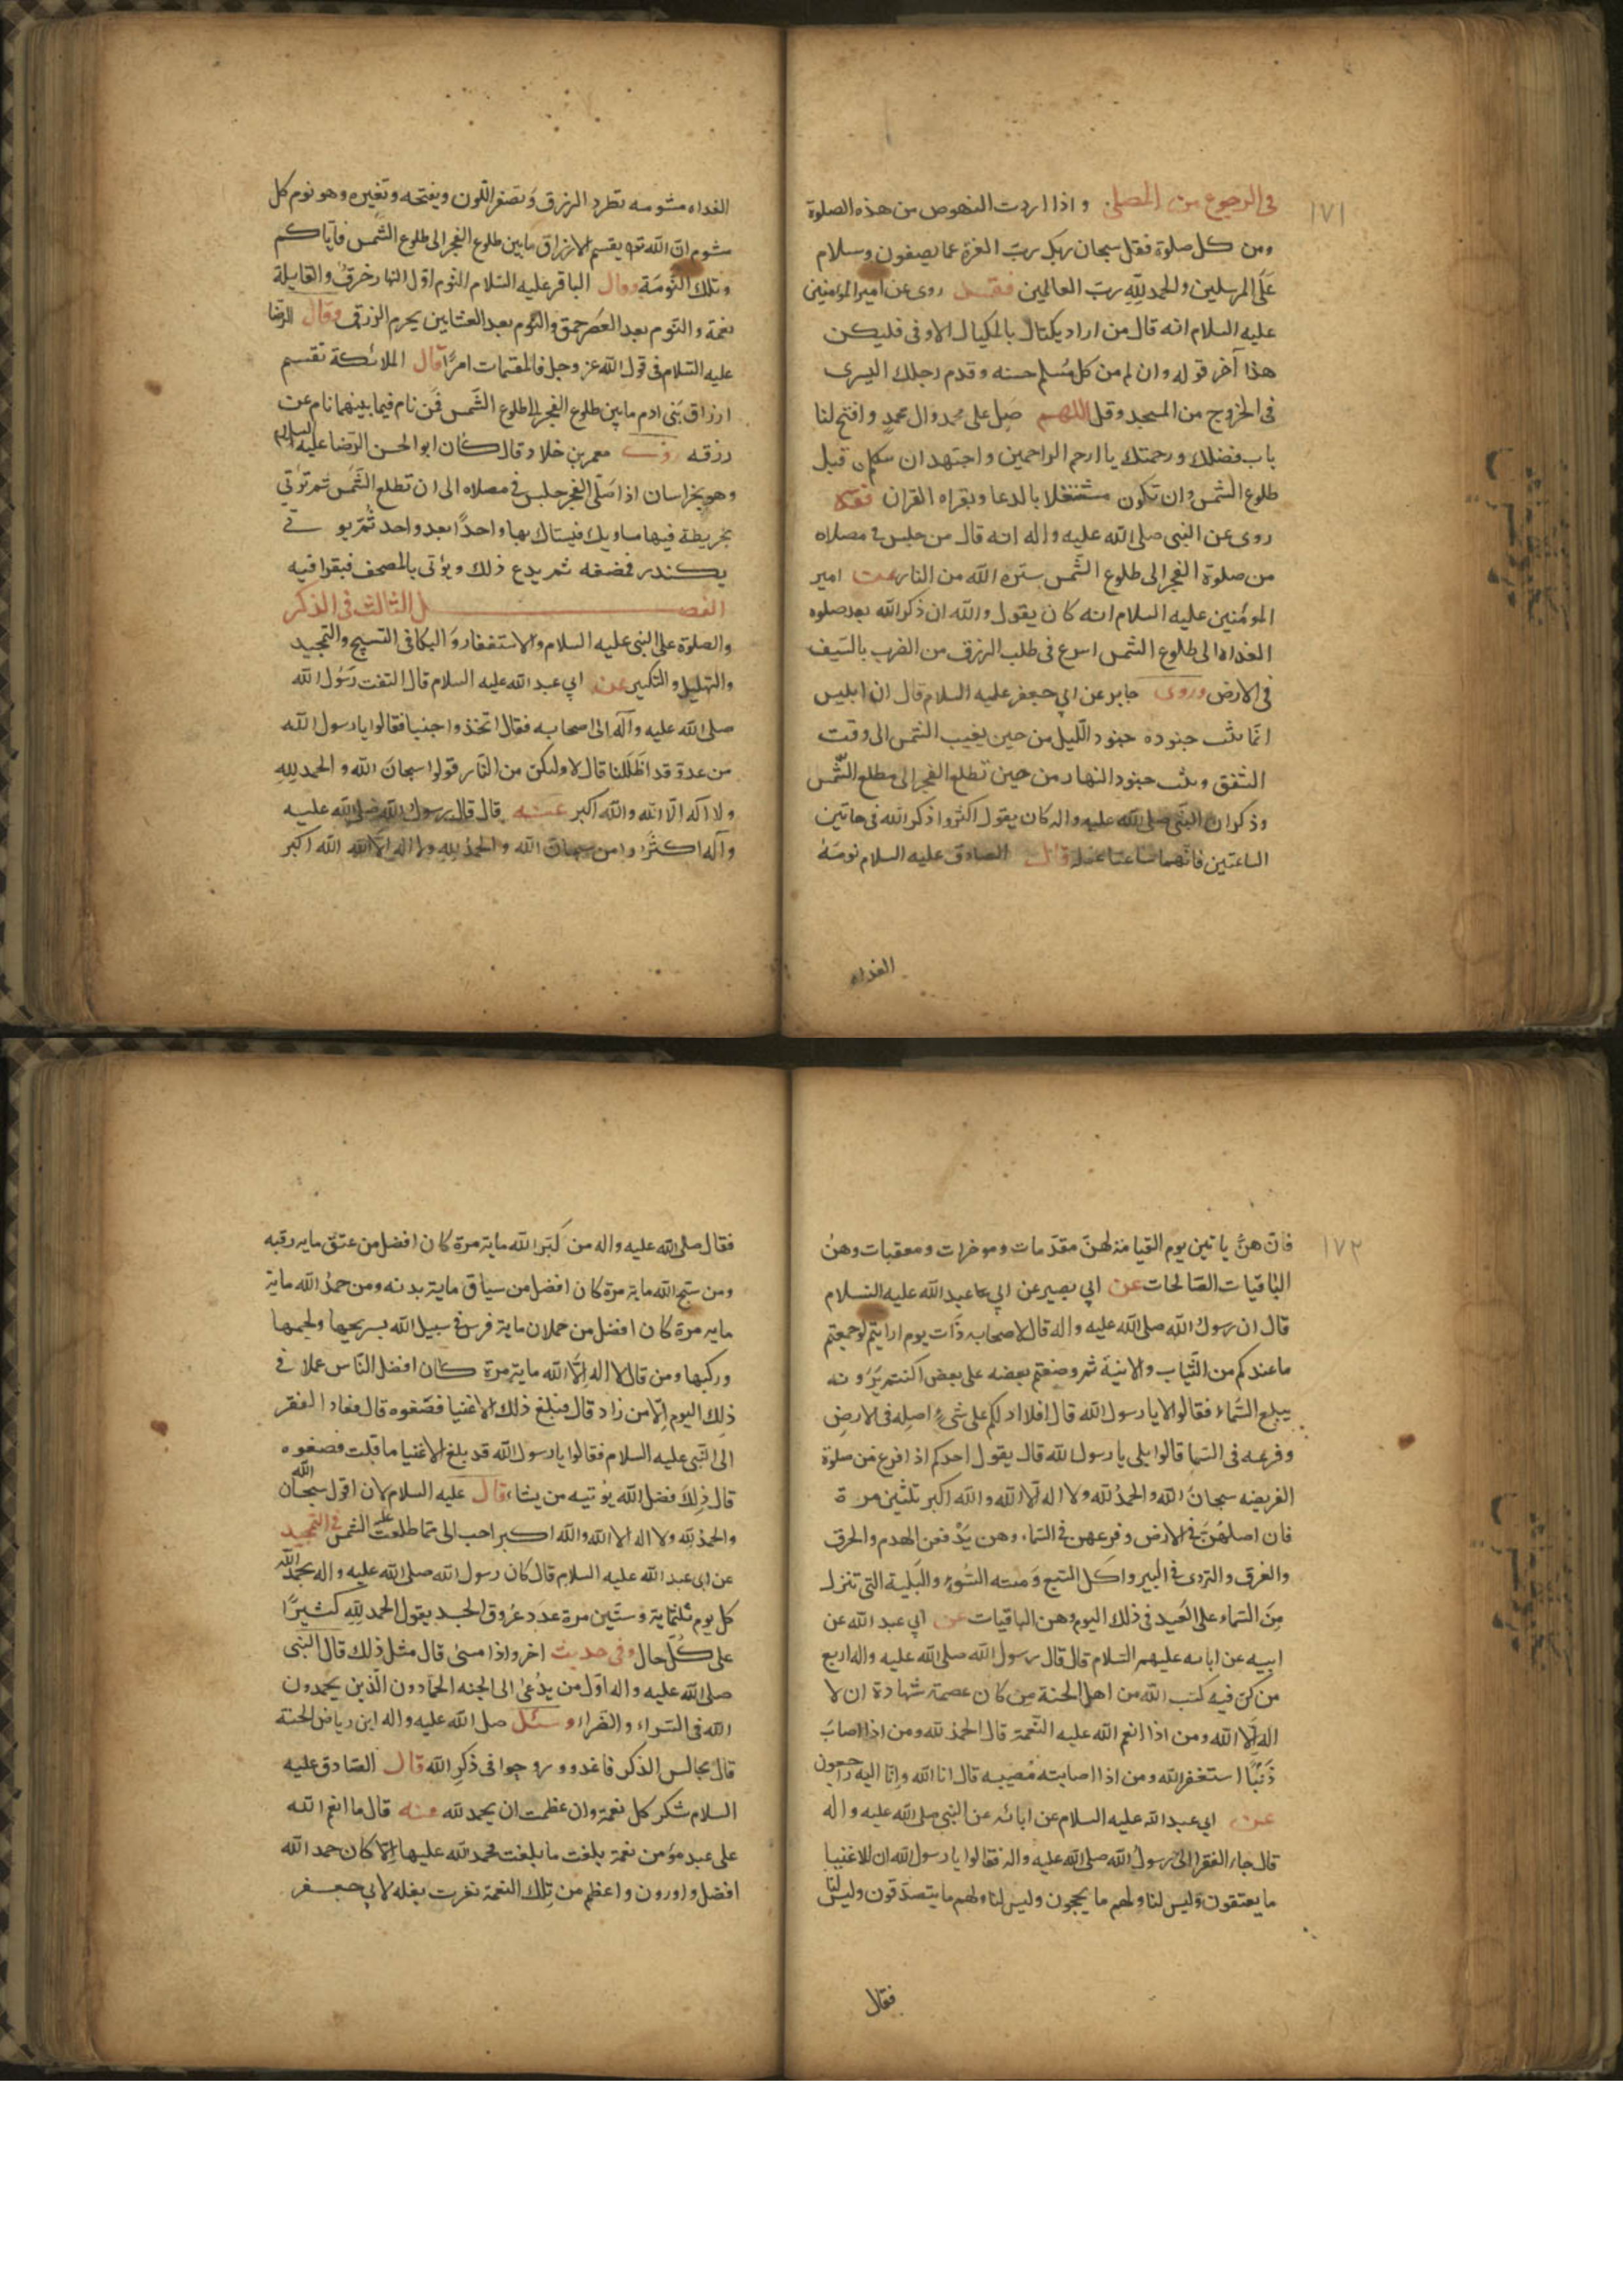 ١٧١
فى الرجوع من المصلى واذا اردت النهوض من هذه الصلوة
ومن كل صلوة فقل سبحان ربك رب العزة عما يصفون وسلام
على المرسلين والحمد لله رب العالمين روى عن امير المؤمنين
عليه السلام انه قال من اراد يكتال بالمكيال الاوفى فليكن
هذا آخر قوله وان له من كل مسلم حسنه وقدم رجلك اليسرى
فى الخروج من المسجد وقل اللهم صل على محمد وال محمد وافتح لنا
باب فضلك ورحمتك يا ارحم الراحمين واجتهد ان قبل
طلوع الشمس وان تكون مشتغلا بالدعا وبقراه القران
روى عن النبى صلى الله عليه واله انه قال من جلس فى مصلاه
من صلوة الفجر الى طلوع الشمس ستره الله من النار عن امير
المومنين عليه السلام انه كان يقول والله ان ذكر الله بعد صلوه
الغداه الى طلوع الشمس اسرع فى طلب الرزق من الضرب بالسيف
فى الارض وروى جابر عن ابي جعفر عليه السلام قال ان ابليس
انما يبث جنوده جنود الليل من حين يغيب الشمس الى وقت
الشفق ويبث جنود النهار من حين تطلع الفجر الى مطلع الشمس
وذكر ان النبى صلى الله عليه واله كان يقول اكثروا ذكر الله فى هاتين
الساعتين فانهما ساعتا غفلة قال الصادق عليه السلام نومة
الغداه
الغداه مشومه تطرد الرزق وتصفر اللون ويقبحه وتغيره وهو نوم كل
مشوم ان الله يقسم الارزاق ما بين طلوع الفجر الى طلوع الشمس فاياكم
وتلك النومة وقال الباقر عليه السلام النوم اول النهار خرق والقايلة
نعمة والنوم بعد العصر حمق والنوم بعد العشاين يحرم الرزق وقال الرضا
عليه السلام فى قول الله عز وجل فالمقسمات امرا قال الملائكة تقسم
ارزاق بنى ادم ما بين طلوع الفجر الى طلوع الشمس فمن نام فيما بينهما نام عن
رزقه معمر بن خلاد قال كان ابو الحسن الرضا عليه السلام
وهو بخراسان اذا صلى الفجر جلس فى مصلاه الى ان تطلع الشمس ثم تؤتي
بخريطة فيها مساويك فيستاك بها واحدا بعد واحد ثم يو تى
بكندر فمضغه ثم يدع ذلك ويؤتى بالمصحف فيقرا فيه
الفصل الثالث فى الذكر
والصلوة على النبى عليه السلام والاستغفار والبكا فى التسبيح والتحميد
والتهليل والتكبير عن ابي عبد الله عليه السلام قال التفت رسول الله
صلى الله عليه وآله الى اصحابه فقال اتخذوا جننا فقالوا يا رسول الله
من عدو قد اظلنا قال لا ولكن من النار قولوا سبحان الله والحمد لله
ولا اله الا الله والله اكبر عنه قال قال رسول الله صلى الله عليه
وآله اكثروا من سبحان الله والحمد لله ولا اله الا الله الله اكبر
١٧٢
فان هن ياتين يوم القيامة لهن مقدمات وموخرات ومعقبات وهن
الباقيات الصالحات عن ابي بصير عن ابي عبد الله عليه السلام
قال ان رسول الله صلى الله عليه واله قال لاصحابه ذات يوم ارايتم لو جمعتم
ما عندكم من الثياب والانية ثم وضعتم بعضه على بعض اكنتم ترونه
يبلغ السماء فقالوا لا يا رسول الله قال افلا ادلكم على شئ اصله فى الارض
وفرعه فى السما قالوا بلى يا رسول الله قال يقول احدكم اذا فرغ من صلوة
الفريضه سبحان الله والحمد لله ولا اله الا الله والله اكبر ثلثين مرة
فان اصلهن فى الارض وفرعهن فى السماء وهن يدفعن الهدم والحرق
والغرق والتردى فى البير واكل السبع وميته السوء والبلية التى تنزل
من السماء على العبد فى ذلك اليوم وهن الباقيات عن ابي عبد الله عن
ابيه عن ابائه عليهم السلام قال قال رسول الله صلى الله عليه واله اربع
من كن فيه كتب الله من اهل الجنة من كان عصمة شهادة ان لا
اله الا الله ومن اذا انعم الله عليه النعمة قال الحمد لله ومن اذا اصاب
ذنبا استغفر الله ومن اذا اصابته مصيبه قال انا الله وانا اليه راجعون
عن ابي عبد الله عليه السلام عن ابائه عن النبي صلى الله عليه واله
قال جاء الفقرا الى رسول الله صلى الله عليه واله فقالوا يا رسول الله ان للاغنيا
ما يعتقون وليس لنا ولهم ما يحجون وليس لنا ولهم ما يتصدقون وليس لنا
فقال
فقال صلى الله عليه واله من كبر الله ماية مرة كان افضل من عتق مايه رقبه
ومن سبح الله ماية مرة كان افضل من سياق ماية بدنه ومن حمد الله ماية
مايه مرة كان افضل من حملان ماية فرس فى سبيل الله بسرجها ولجمها
وركبها ومن قال لا اله الا الله ماية مرة كان افضل الناس عملا فى
ذلك اليوم الا من زاد قال فبلغ ذلك الاغنيا فصنعوه قال فعاد الفقر
الى النبى عليه السلام فقالوا يا رسول الله قد بلغ الاغنيا ما قلت فصنعوه
قال ذلك فضل الله يؤتيه من يشاء قال عليه السلام لان اقول سبحان الله
والحمد لله ولا اله الا الله والله اكبر احب الى مما طلعت عليه الشمس فى التحميد
عن ابى عبد الله عليه السلام قال كان رسول الله صلى الله عليه واله يحمد الله
كل يوم ثلثماية وستين مرة عدد عروق الجسد يقول الحمد لله كثيرا
على كل حال وفى حديث اخر واذا مسى قال مثل ذلك قال النبى
صلى الله عليه واله اول من يدعى الى الجنه الحمادون الذين يحمدون
الله فى السراء والضراء وسئل صلى الله عليه واله اين رياض الجنة
قال مجالس الذكر فاغدوو روحوا فى ذكر الله قال الصادق عليه
السلام شكر كل نعمة وان عظمت ان يحمد لله ومنه قال ما انعم الله
على عبد مؤمن نعمة بلغت ما بلغت فحمد الله عليها الا كان حمد الله
افضل واوزن واعظم من تلك النعمة نفرت بغله لابي جعفر